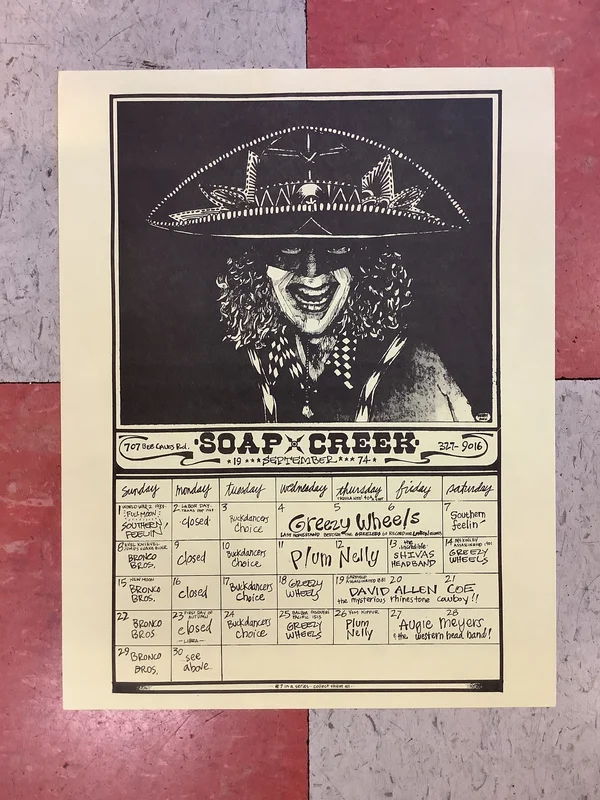 707 Bee Caves Rd. SOAP CREEK 327-9016
19 SEPTEMBER 74
Sunday monday tuesday wednesday thursday friday saturday
1 WORLD WAR 2 1939
FULL MOON
SOUTHERN FEELIN
2 LABOR DAY
closed
3 Buckdancers Choice
4 5 6
Greezy Wheels
7 Southern feelin'
8
BRONCO BROS.
9 closed
10 Buckdancers Choice
11 12
Plum Nelly
13 the incredible
SHIVAS HEADBAND
14
GREEZY WHEELS
15 NEW MOON
BRONCO BROS.
16 closed
17 Buckdancers Choice
18 GREEZY WHEELS
19 20 21
DAVID ALLEN COE
the mysterious rhinestone cowboy!!
22 BRONCO BROS.
23 FIRST DAY OF AUTUMN
closed
LIBRA
24 Buckdancers Choice
25 BALBOA DISCOVERS PACIFIC 1513
GREEZY WHEELS
26 YOM KIPPUR
Plum Nelly
27 28
Augie Meyers
& the western head band!
29 BRONCO BROS.
30 see above
#7 in a series - collect them all -